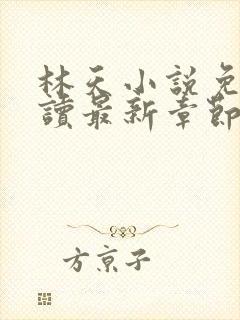 林天小說免
讀最新章節
方京子